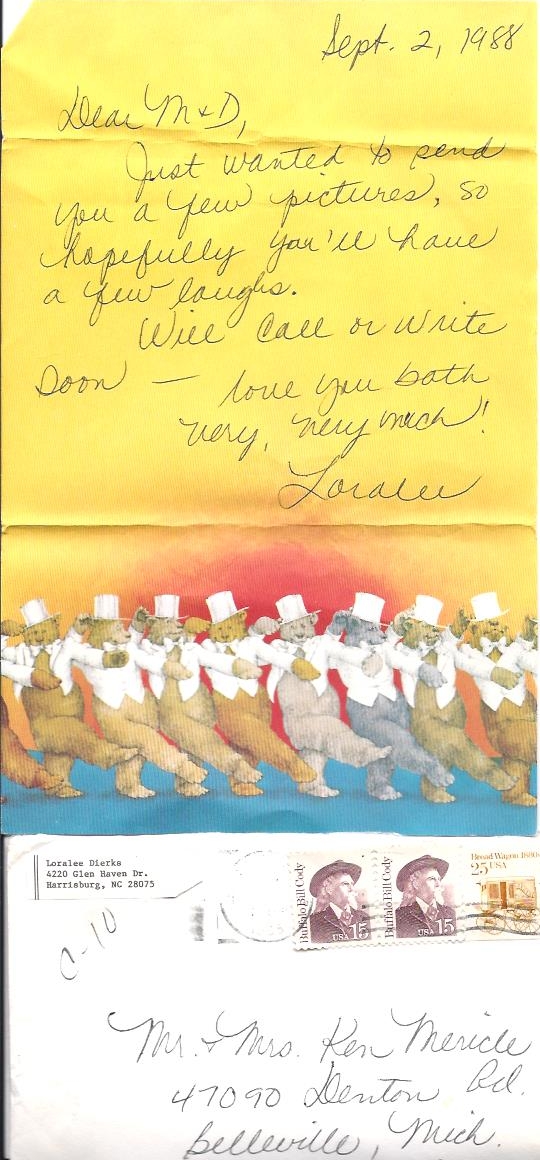 Sept. 2, 1988
Dear M & D,
Just wanted to send
you a few pictures, so
hopefully you'll have
a few laughs.
Will call or write
soon — love you both
very, very much!
Loralee
Loralee Dierks
4220 Glen Haven Dr.
Harrisburg, NC 28075
C-10
Buffalo Bill Cody
USA 15
Buffalo Bill Cody
USA 15
Bread Wagon 1880s
25 USA
Mr. & Mrs. Ken Mericle
47090 Denton Rd.
Belleville, Mich.